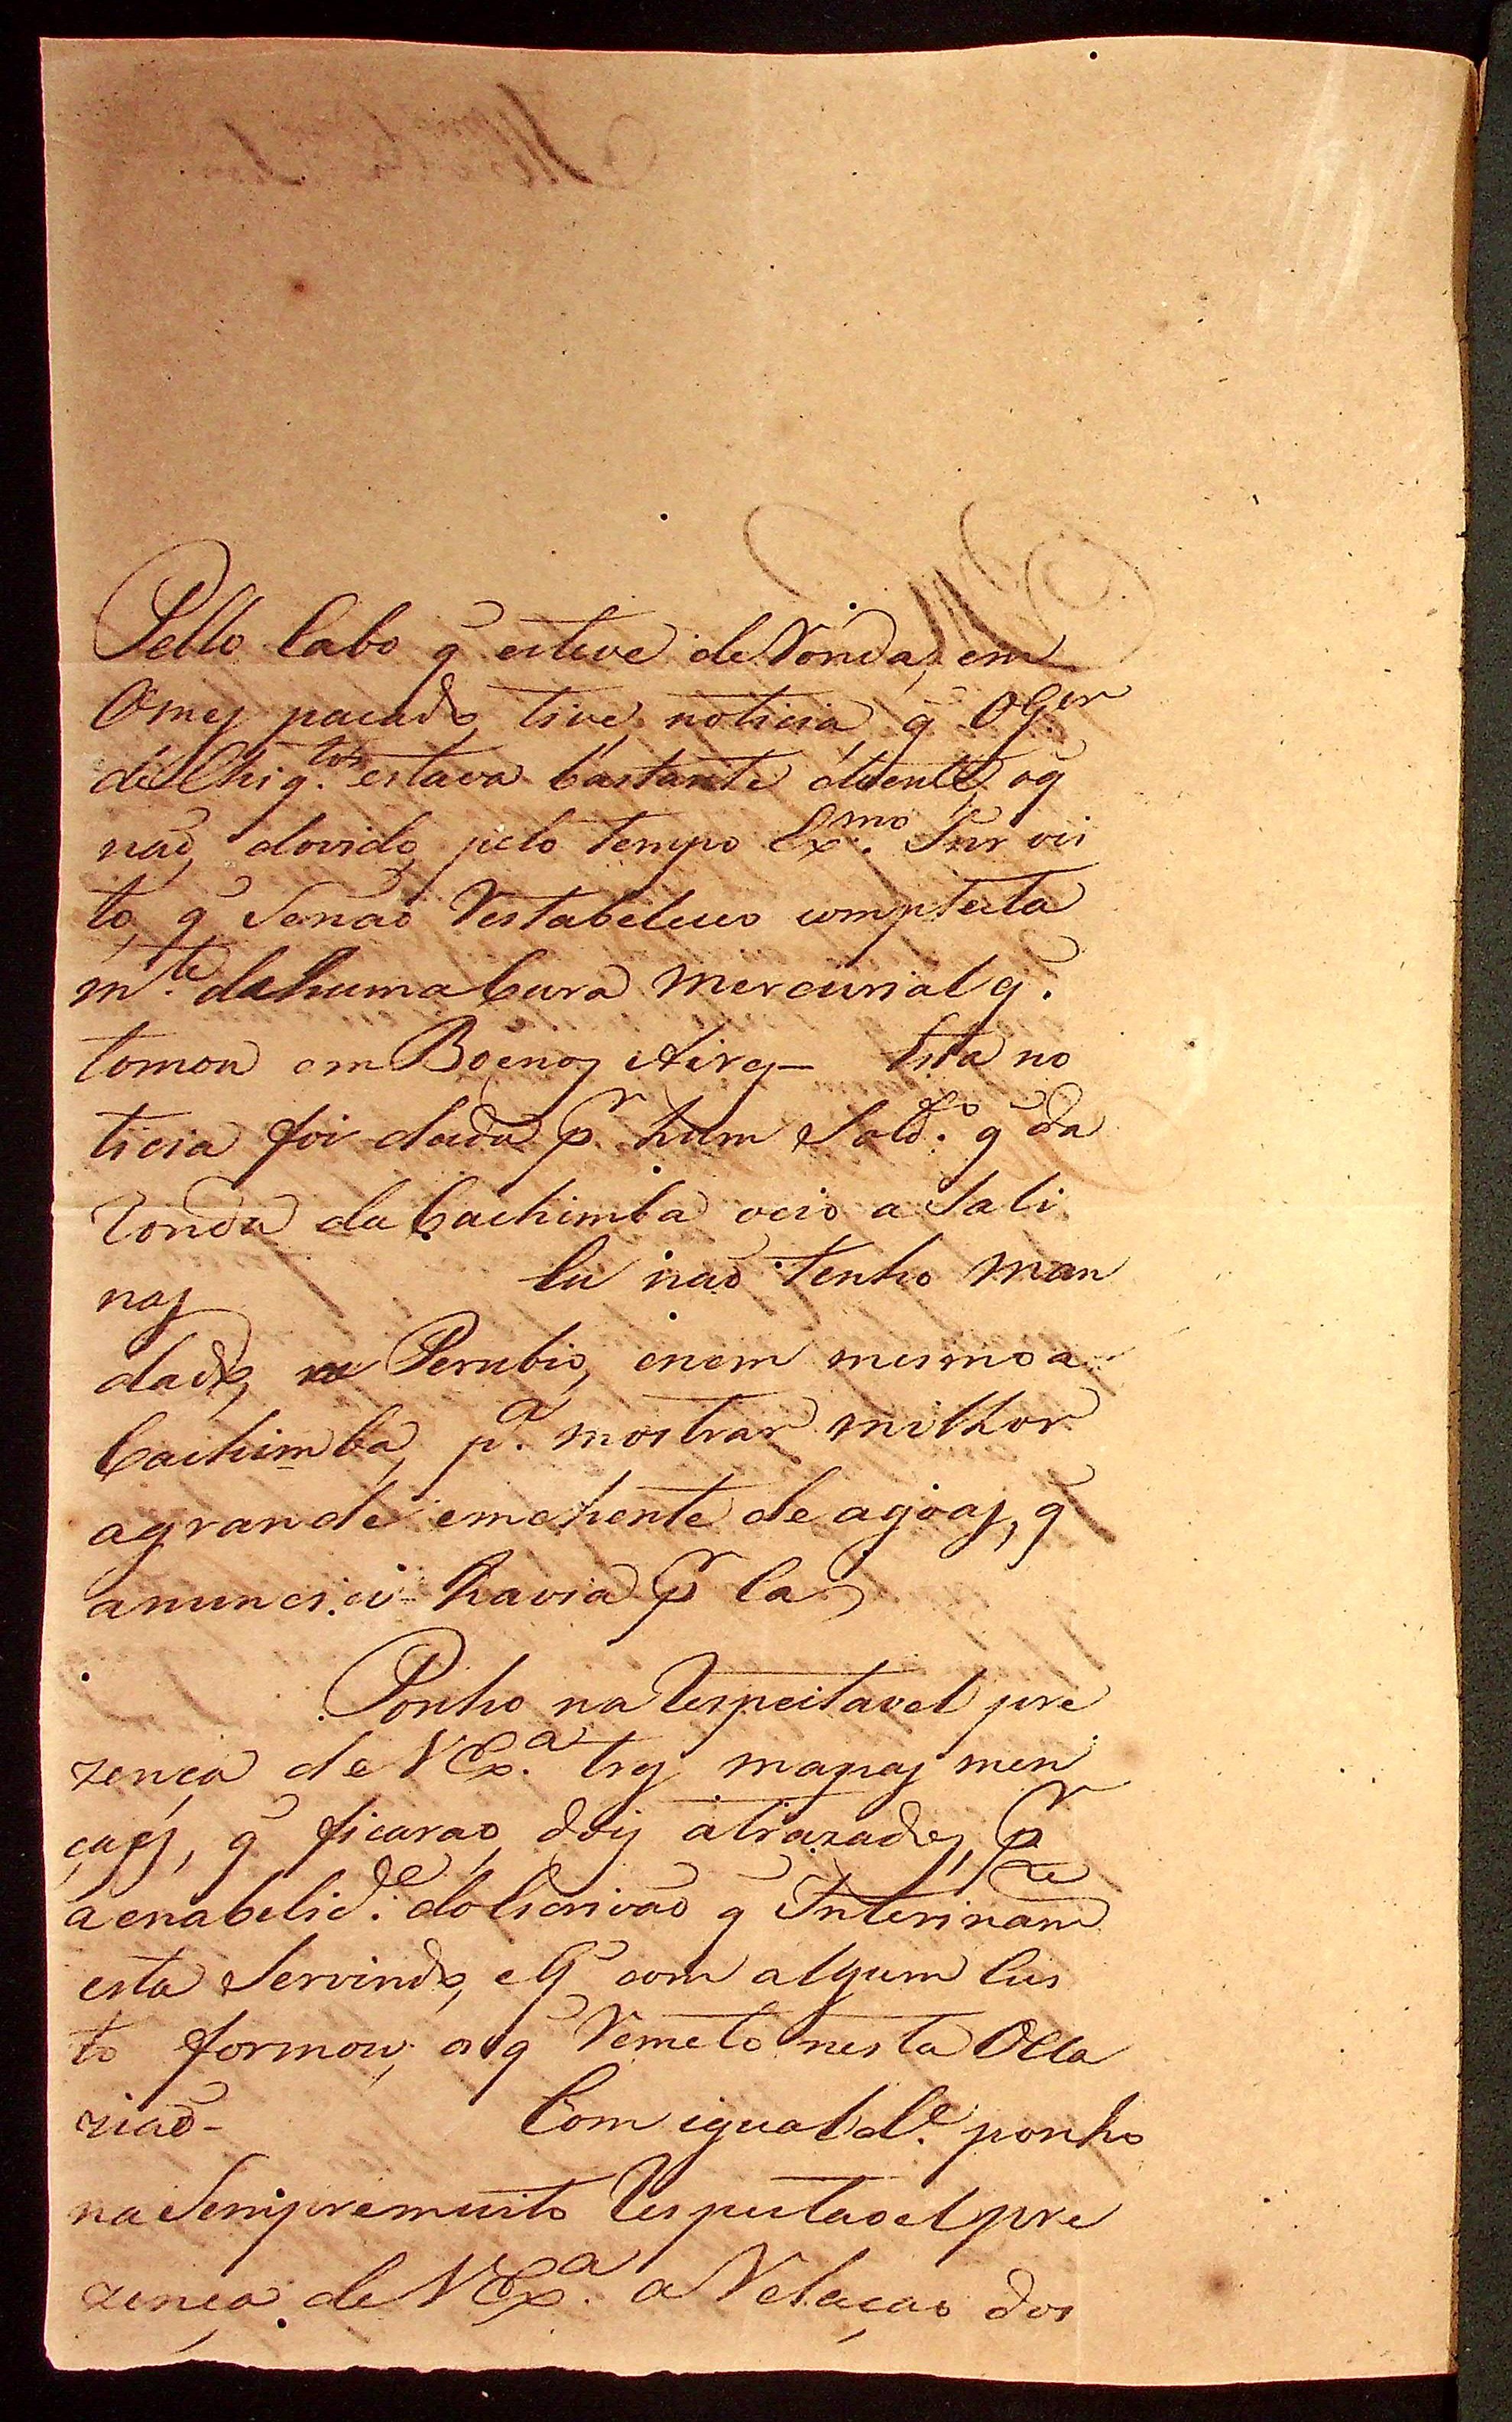 Pello Cabo q̃ esteve de Ronda, em
O mes pacado, tive noticia, q̃ O Gºr
de Chiq.tos estava bastante doente, oq
não, dovido, pelo tempo Ex.mo Snr vis
to, q̃ Senão Restabeleceo compteta
m.te de huma Cura Mercurial q̃.
tomou em Boenos Aires— Esta no
ticia foi dada pr hum Sold.o q̃ da
Ronda da Cachimba veio a Sali
nas Eu não tenho Man
dado, a Perubio, enem mesmo a
Cachimba, p.a mostrar milhor
agrande emchente de agoas, q̃
anunciei havia pr la
Ponho na Respeitavel pre
zença de V Ex.a tres mapas men
çaes, q̃ ficarão, dois atrazados, pr
a enabelid.e do Escrivão q̃ Interinam.te
esta Servindo, e q̃ com algum Cus
to formou, o q̃ Remeto nesta Occa
zião- Com igual d.e ponho
na Sempre muito Respeitavel pre
zença de V Ex.a a Relação dos